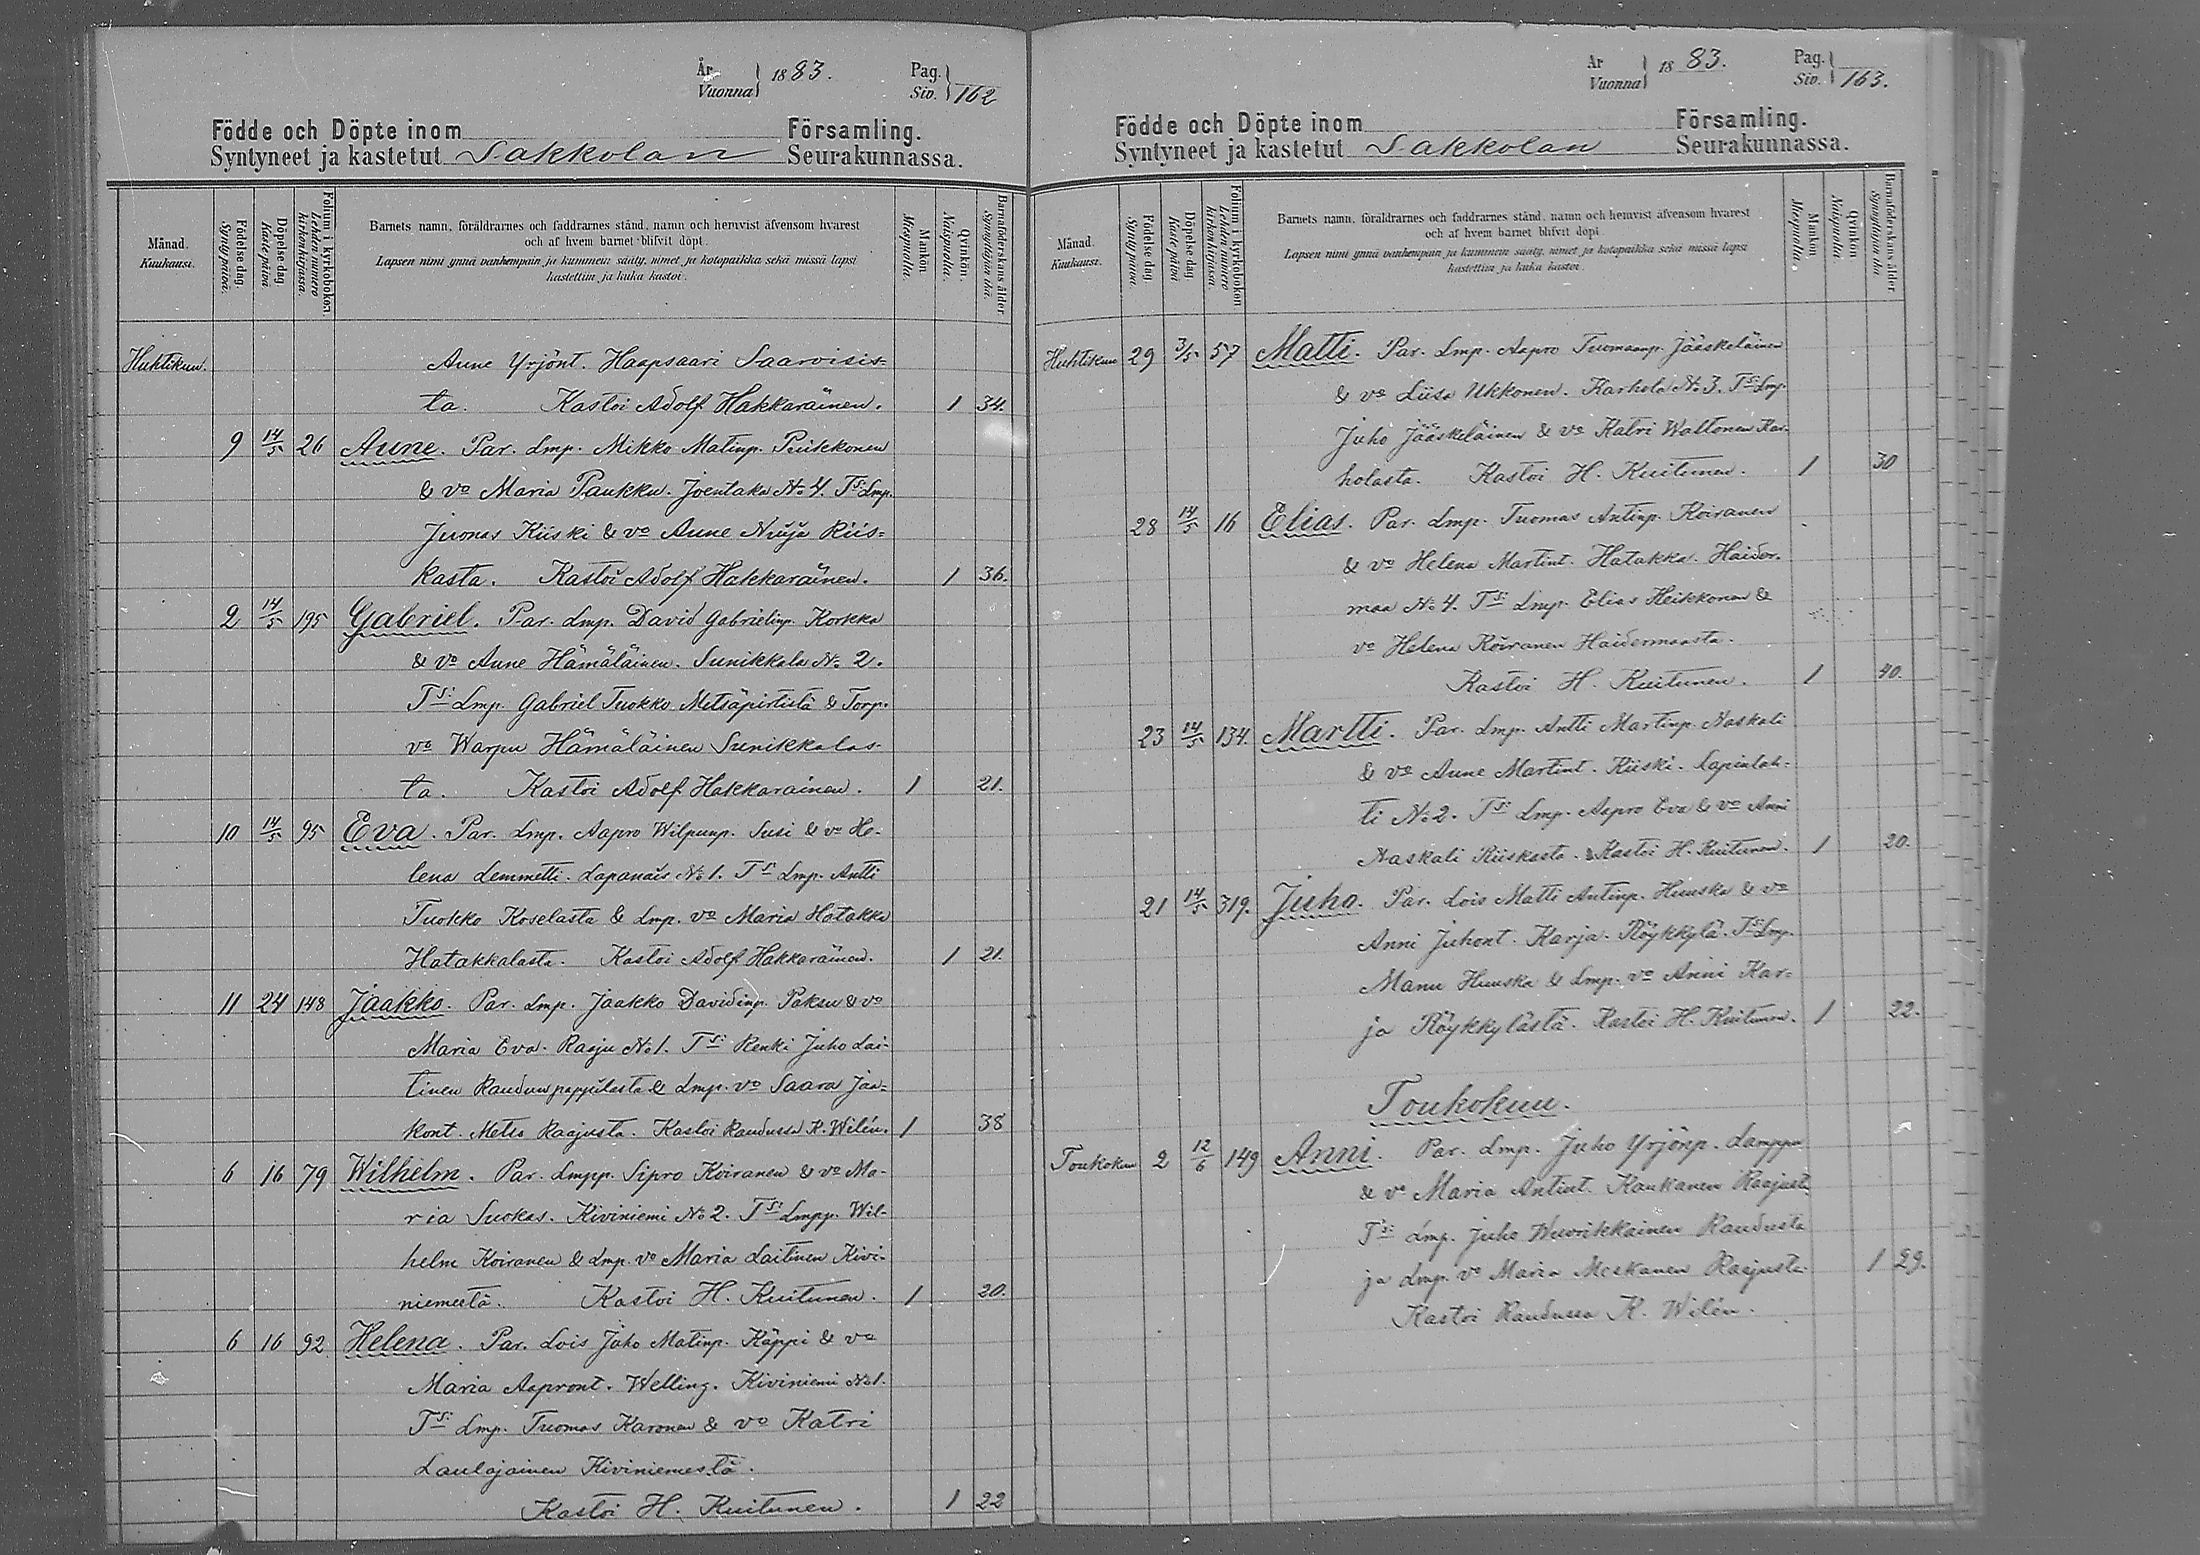 År
Vuonna 1883.
Pag.
Siv. 162
Födde och Döpte inom Församling.
Syntyneet ja kastetut Sakkolan Seurakunnassa.
Månad.
Kuukausi.
Födelsedag.
Syntymäpäivä.
Döpelsedag.
Kastepäivä.
Folium i kyrkoboken.
Lehden numero kirkonkirjassa.
Barnets namn, föräldrarnes och faddrarnes stånd, namn och hemvist äfvensom hvarest
och af hvem barnet blifvit döpt.
Lapsen nimi ynnä vanhempain ja kummein sääty, nimet ja kotopaikka sekä missä lapsi
kastettiin ja kuka kastoi.
Mankön.
Miespuolia.
Qvinkön.
Naispuolia.
Barnaföderskans ålder.
Synnyttäjän ikä.
Huhtikuu. Aune Yrjönt. Haapsaari Saarvisis-
ta. Kastoi Adolf Hakkarainen. 1 34.
9 14/5 26 Aune. Par. Lmp. Mikko Matinp. Piikkonen
& vo Maria Paukku. Joentaka No 4. Tsi Lmp.
Juonas Kiiski & vo Aune Nuija Riis-
kasta. Kastoi Adolf Hakkarainen. 1 36.
2 14/5 195 Gabriel. Par. Lmp. David Gabrielinp. Korkka
& vo Aune Hämäläinen. Sunikkala No 2.
Tsi Lmp. Gabriel Tuokko Metsäpirtistä & Torp.
vo Warpu Hämäläinen Sunikkalas-
ta. Kastoi Adolf Hakkarainen. 1 21.
10 14/5 95 Eva. Par. Lmp. Aapro Wilpunp. Susi & vo He-
lena Lemmetti. Lapanais No 1. Tsi Lmp. Antti
Tuokko Koselasta & Lmp. vo Maria Hatakka
Hatakkalasta. Kastoi Adolf Hakkarainen. 1 21.
11 24 148 Jaakko. Par. Lmp. Jaakko Davidinp. Paksu & vo
Maria Eva. Raaju No 1. Tsi Renki Juho Lai-
tinen Raudunpappilasta & Lmp. vo Saara Jaa-
kont. Metso Raajusta. Kastoi Raudussa K. Wilén. 1 38
6 16 79 Wilhelm. Par. Lmpp. Sipro Koiranen & vo Ma-
ria Suokas. Kiviniemi No 2. Tsi Lmpp. Wil-
helm Koiranen & Lmp. vo Maria Laitinen Kivi-
niemestä. Kastoi H. Kuitunen. 1 20.
6 16 92 Helena. Par. Lois Juho Matinp. Käppi & vo
Maria Aapront. Welling. Kiviniemi No 1.
Tsi Lmp. Tuomas Karonen & vo Katri
Laulajainen Kiviniemestä.
Kastoi H. Kuitunen. 1 22
År
Vuonna 1883.
Pag.
Siv. 163.
Födde och Döpte inom Församling.
Syntyneet ja kastetut Sakkolan Seurakunnassa.
Månad.
Kuukausi.
Födelsedag.
Syntymäpäivä.
Döpelsedag.
Kastepäivä.
Folium i kyrkoboken.
Lehden numero kirkonkirjassa.
Barnets namn, föräldrarnes och faddrarnes stånd, namn och hemvist äfvensom hvarest
och af hvem barnet blifvit döpt.
Lapsen nimi ynnä vanhempain ja kummein sääty, nimet ja kotopaikka sekä missä lapsi
kastettiin ja kuka kastoi.
Mankön.
Miespuolia.
Qvinkön.
Naispuolia.
Barnaföderskans ålder.
Synnyttäjän ikä.
Huhtikuu 29 3/5 57 Matti. Par. Lmp. Aapro Tuomaanp. Jääskeläinen
& vo Liisa Ukkonen. Karhola No 3. Tsi Lmp.
Juho Jääskeläinen & vo Katri Wattonen Kar-
holasta. Kastoi H. Kuitunen. 1 30
28 14/5 16 Elias. Par. Lmp. Tuomas Antinp. Koiranen
& vo Helena Martint. Hatakka. Haider-
maa No 4. Tsi Lmp. Elias Heikkonen &
vo Helena Koiranen Haidermaasta.
Kastoi H. Kuitunen. 1 40.
23 14/5 134. Martti. Par. Lmp. Antti Martinp. Naskali
& vo Aune Martint. Kiiski. Lapinlah-
ti No 2. Tsi Lmp. Aapro Eva & vo Anni
Naskali Riiskasta. Kastoi H. Kuitunen. 1 20.
21 14/5 319. Juho. Par. Lois Matti Antinp. Huuska & vo
Anni Juhont. Karja. Röykkylä. Tsi Lmp.
Manu Huuska & Lmp. vo Anni Kar-
ja Röykkylästä. Kastoi H. Kuitunen. 1 22.
Toukokuu.
Toukokuu 2 12/6 149 Anni. Par. Lmp. Juho Yrjönp. Lamppu
& vo Maria Antint. Kaukanen Raajust.
Tsi Lmp. Juho Wuorikkainen Raudusta
ja Lmp. vo Maria Meskanen Raajusta. 1 29.
Kastoi Raudussa K. Wilén.